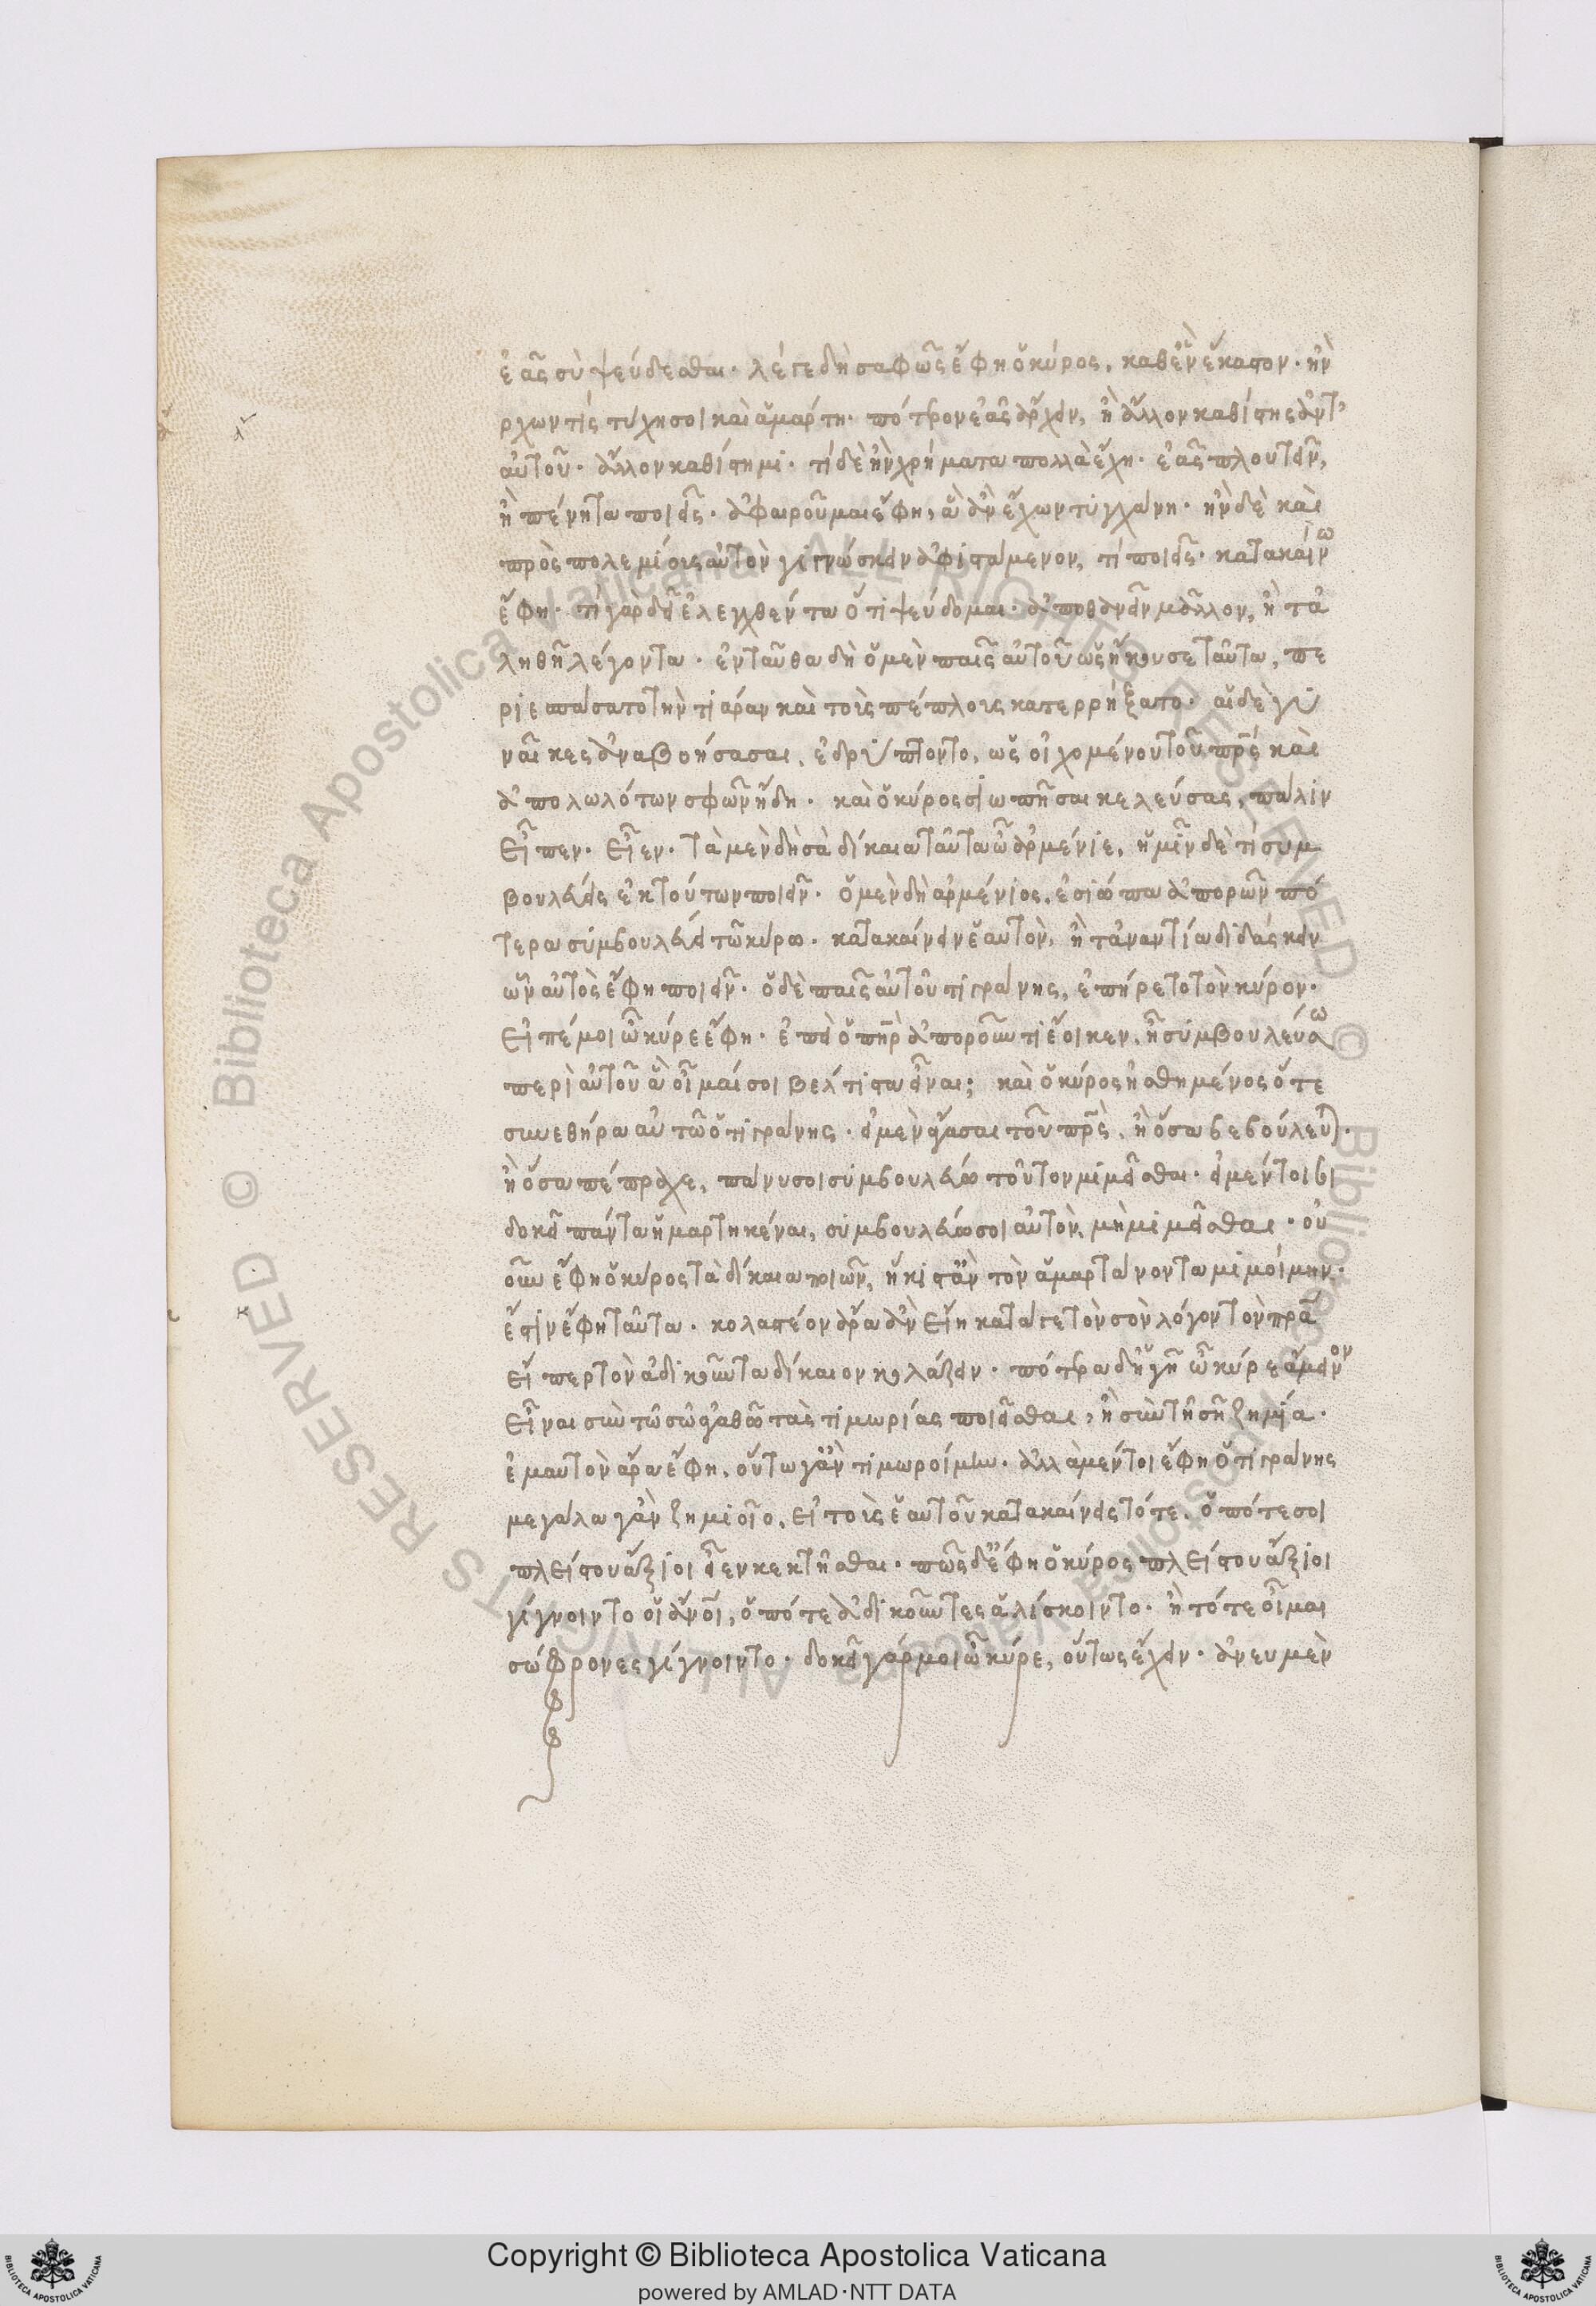 ἐᾷς σὺ ψεύδεσθαι. λέγε δὴ σαφῶς ἔφη ὁ κύρος, καθ' ἓν ἕκαστον. ἢν
ρχων τίς τύχη σοι καὶ ἁμάρτη. πότερον ἐᾷς ἄρχειν, ἢ ἄλλον καθίστης ἀντ'
αὐτοῦ. ἄλλον καθίστημι. τί δὲ ἢν χρήματα πολλὰ ἔχη. ἐᾷς πλουτεῖν,
ἢ πένητα ποιεῖς. ἀφαιροῦμαι ἔφη, ἃ ἂν ἔχων τυγχάνη. ἢν δὲ καὶ
πρὸς πολεμίους αὐτὸν γιγνώσκειν ἀφιστάμενον, τί ποιεῖς. κατακαίνω
ἔφη. τί γὰρ δεῖ ἐλεγχθέντα ὅτι ψεύδομαι. ἀποθανεῖν μᾶλλον, ἢ τἀ
ληθῆ λέγοντα. ἐνταῦθα δὴ ὁ μὲν παῖς αὐτοῦ ὡς ἤκουσε ταῦτα, πε
ριεσπάσατο τὴν τιάραν καὶ τοὺς πέπλους κατερρήξατο. αἱ δὲ γυ
ναῖκες ἀναβοήσασαι, ἐδρύπτοντο, ὡς οἰχομένου τοῦ πρς καὶ
ἀπολωλότων σφῶν ἤδη. καὶ ὁ κύρος σιωπῆσαι κελεύσας, πάλιν
εἶπεν. εἶεν. τὰ μὲν δὴ σὰ δίκαια ταῦτα ὦ ἀρμένιε, ἡμῖν δὲ τί συμ
βουλεύεις ἐκ τούτων ποιεῖν. ὁ μὲν δὴ ἀρμένιος, ἐσιώπα ἀπορῶν πό
τερα συμβουλεύει τῶ κύρω. κατακαίνειν ἑαυτὸν, ἢ τἀναντία διδάσκειν
ὧν αὐτὸς ἔφη ποιεῖν. ὁ δὲ παῖς αὐτοῦ τιγράνης, ἐπήρετο τὸν κύρον.
εἰπέ μοι ὦ κύρε ἔφη. ἐπεὶ ὁ πηρ ἀποροῦντι ἔοικεν, ἦ συμβουλεύσω
περὶ αὐτοῦ ἃ οἶμαί σοι βέλτιστα εἶναι; καὶ ὁ κύρος ἠσθημένος ὅτε
συνεθήρα αὐτῶ ὁ τιγράνης. εἰ μὲν ἄγασαι τοῦ πρς, ἢ ὅσα βεβούλευται.
ἢ ὅσα πέπραχε, πάνυ σοι συμβουλεύω τοῦτον μιμεῖσθαι. εἰ μέντοι σοι
δοκεῖ πάντα ἡμαρτηκέναι, συμβουλεύω σοι αὐτὸν μὴ μιμεῖσθαι. οὐ
οῦν ἔφη ὁ κύρος τὰ δίκαια ποιῶν, ἥκιστ' ἂν τὸν ἁμαρτάνοντα μιμοίμην.
ἔστιν ἔφη ταῦτα. κολαστέον ἄρα ἂν εἴη κατά γε τὸν σὸν λόγον τὸν πρα
εἴπερ τὸν ἀδικοῦντα δίκαιον κολάζειν. πότερα δ' ἡγῆ ὦ κύρε ἄμεινον
εἶναι σὺν τῶ σῶ ἀγαθῶ τὰς τιμωρίας ποιεῖσθαι, ἢ σὺν τῆ σῆ ζημία.
ἐμαυτὸν ἄρα ἔφη, οὕτω γ' ἂν τιμωροίμην. ἀλλὰ μέντοι ἔφη ὁ τιγράνης
μεγάλα γ' ἂν ζημιοῖο, εἰ τοὺς ἑαυτοῦ κατακαίνεις τότε. ὁπότε σοι
πλείστου ἄξιοι εἶεν κεκτῆσθαι. πῶς δ' ἔφη ὁ κύρος πλείστου ἄξιοι
γίγνοιντο οἱ ἄνοι, ὁπότε ἀδικοῦντες ἁλίσκοιντο. ἢ τότε οἶμαι
σώφρονες γίγνοιντο. δοκεῖ γάρ μοι ὦ κύρε, οὕτως ἔχειν. ἄνευ μὲν